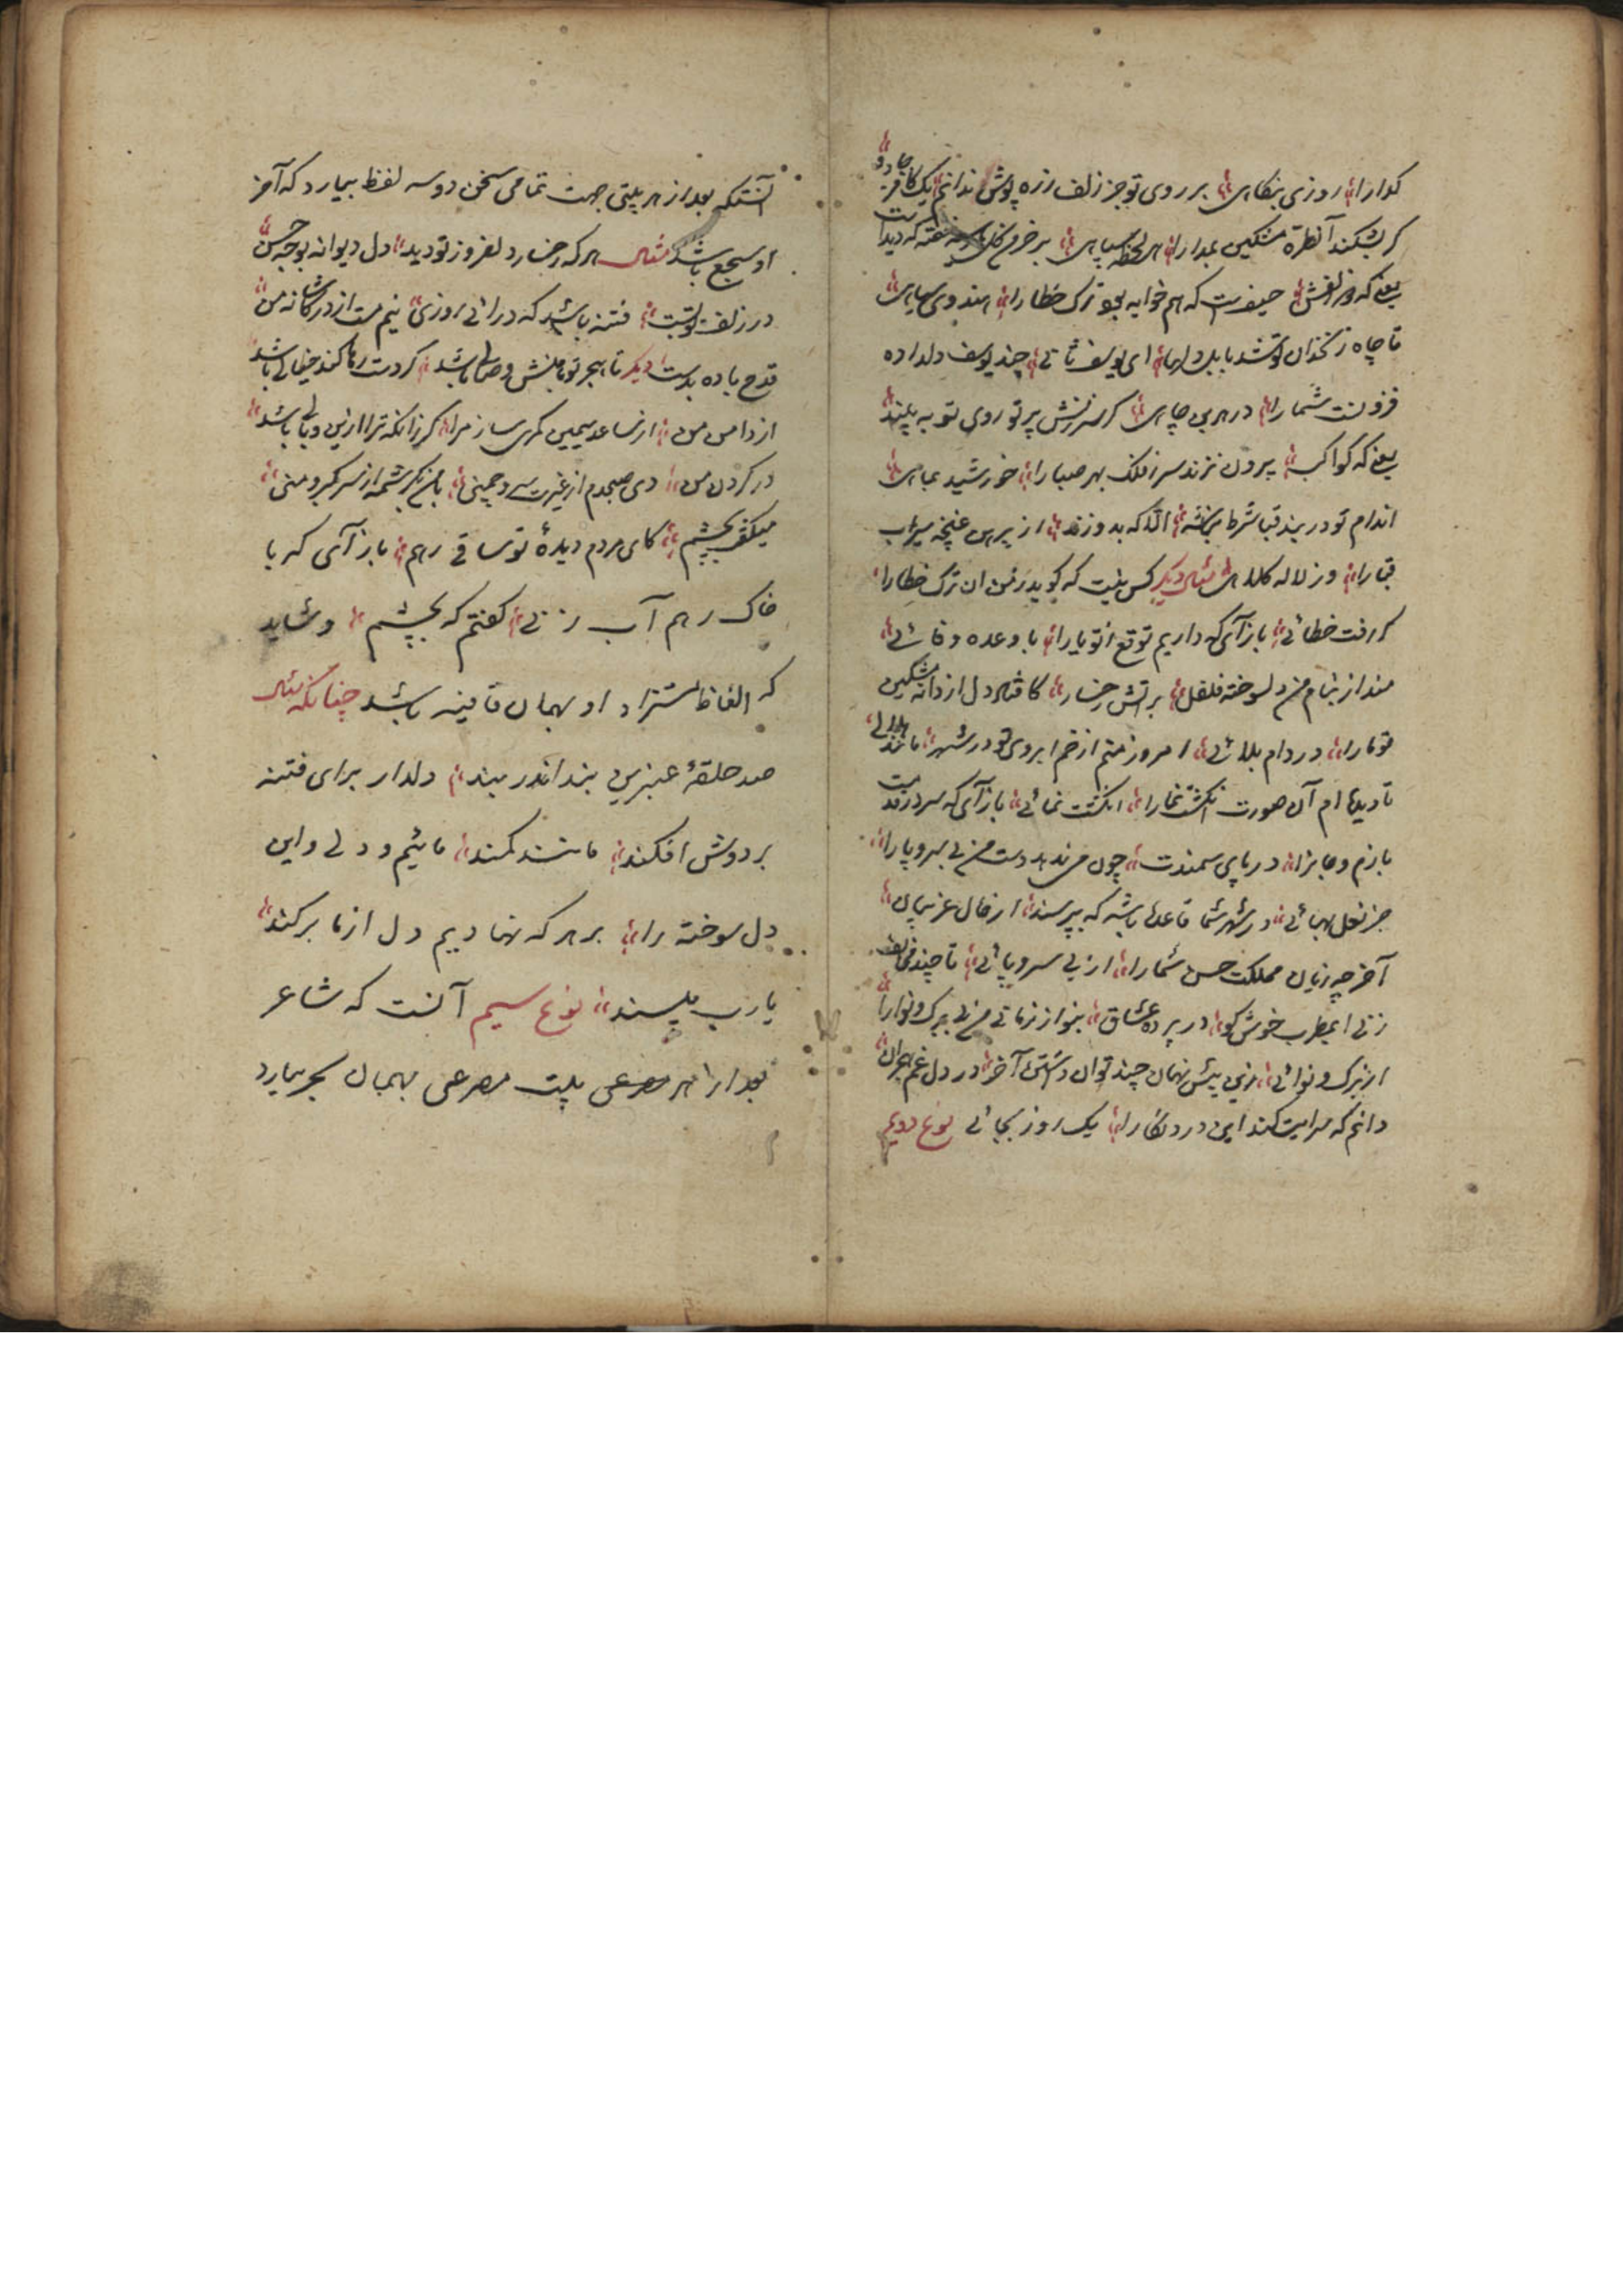 کدا را روزی بنکاهی بر روی تو جز زلف زره پوش ندانم یک کافر جادو
کر بشکند آنطره مشکین بمدارا هر لحظه سپاهی بر خرمن کل خفته که دیدست
یعنی که سر زلفش حیفست که همخوابه بود ترک خطا را هندوی سیاهی
تا چاه زنخدان تو شد بابل دلها ای یوسف ثانی چند یوسف دلداده
فزونست شما را در هر بن چاهی کر سرزنش پرتو روی تو به بیند
یعنی که کواکب بیرون نزند سر ز فلک بهر صبا را خورشید بماهی
اندام تو در بند قبا شرط نباشد الا که بدوزند از پیرهن غنچه سیراب
قبا را وز لاله کلاهی مثال دیکر کس نیست که کوید ز من آن ترک خطا را
کر رفت خطائی باز آی که داریم توقع ز تو یارا با وعده وفائی
مند از بنام من دلسوخته فلفل بر آتش رخسار کافتاد دل از دانه مشکین
تو ما را در دام بلائی امروز منم از خم ابروی تو در شهر مانند هلالی
تا دیده ام آن صورت انکشت نما را انکشت نمائی باز آی که سر در قدمت
بازم و جانرا در پای سمندت چون می ندهد دست من بی سر و پا را
جز نعل بهائی در شهر شما قاعده باشد که بپرسند از حال غریبان
آخر چه زیان مملکت حسن شما را از بی سر و پائی تا چند
زنی ای مطرب خوش کو در پرده عشاق بنواز زمانی من بی برک و نوا را
از برک و نوائی زین بیش نهان چند توان داشتن آخر در دل غم هجران
دانم که سرایت کند این درد نکارا یک روز بجائی نوع دویم
آنستکه بعد از هر بیتی جهت تمامی سخن دو سه لفظ بیارد که آخر
او سجع باشد مثال هر که رخسار دلفروز تو دید دل دیوانه بوجه حسن
در زلف تو بست فتنه باشد که در آئی روزی نیم مست از در کاشانه من
قدح باده بدست دیکر تا هجر تو باشد وصالی باشد کر دست رها کند خیالی باشد
از دامن من از ساعد سیمین کمری ساز مرا کر زانکه ترا ازین وبالی باشد
در کردن من دی صبحدم از غیرت سرو چمنی با من نکر شمه از سر کبر و منی
میکفت بچشم کای مردم دیدهٔ تو ساقی رهم باز آی که با
خاک رهم آب زنی کفتم که بچشم و شاید
که الفاظ مستزاد او بهمان قافیه باشد چنانکه مثال
صد حلقهٔ عنبرین بند اندر بند دلدار برای فتنه
بر دوش افکند مانند کمند مائیم و دلی و این
دل سوخته را بر هر که نهادیم دل از ما برکند
یا رب مپسند نوع سیم آنست که شاعر
بعد از هر مصرعی بیت مصرعی بهمان بحر بیارد